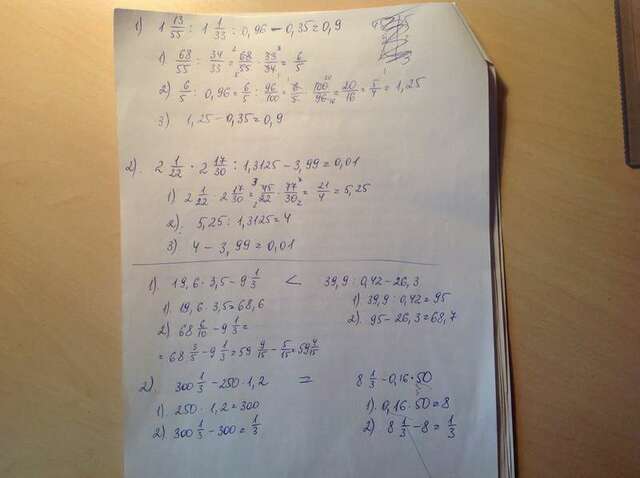 1) 1 13/55 : 1 1/33 : 0,96 − 0,35 = 0,9
1) 68/55 : 34/33 = 68/55 · 33/34 = 6/5
2) 6/5 : 0,96 = 6/5 : 96/100 = 6/5 · 100/96 = 20/16 = 5/4 = 1,25
3) 1,25 − 0,35 = 0,9
2). 2 1/22 · 2 17/30 : 1,3125 − 3,99 = 0,01
1) 2 1/22 · 2 17/30 = 45/22 · 77/30 = 21/4 = 5,25
2). 5,25 : 1,3125 = 4
3) 4 − 3,99 = 0,01
1). 19,6 · 3,5 − 9 1/3 < 39,9 : 0,42 − 26,3
1). 19,6 · 3,5 = 68,6 1) 39,9 : 0,42 = 95
2) 68 6/10 − 9 1/3 = 2). 95 − 26,3 = 68,7
= 68 3/5 − 9 1/3 = 59 9/15 − 5/15 = 59 4/15
2). 300 1/3 − 250 · 1,2 = 8 1/3 − 0,16 · 50
1). 250 · 1,2 = 300 1). 0,16 · 50 = 8
2) 300 1/3 − 300 = 1/3 2) 8 1/3 − 8 = 1/3